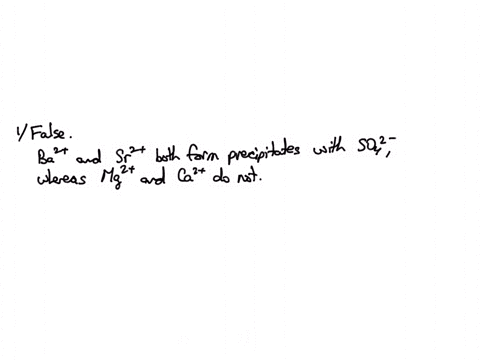 1/ False.
Ba²⁺ and Sr²⁺ both form precipitates with SO₄²⁻,
whereas Mg²⁺ and Ca²⁺ do not.